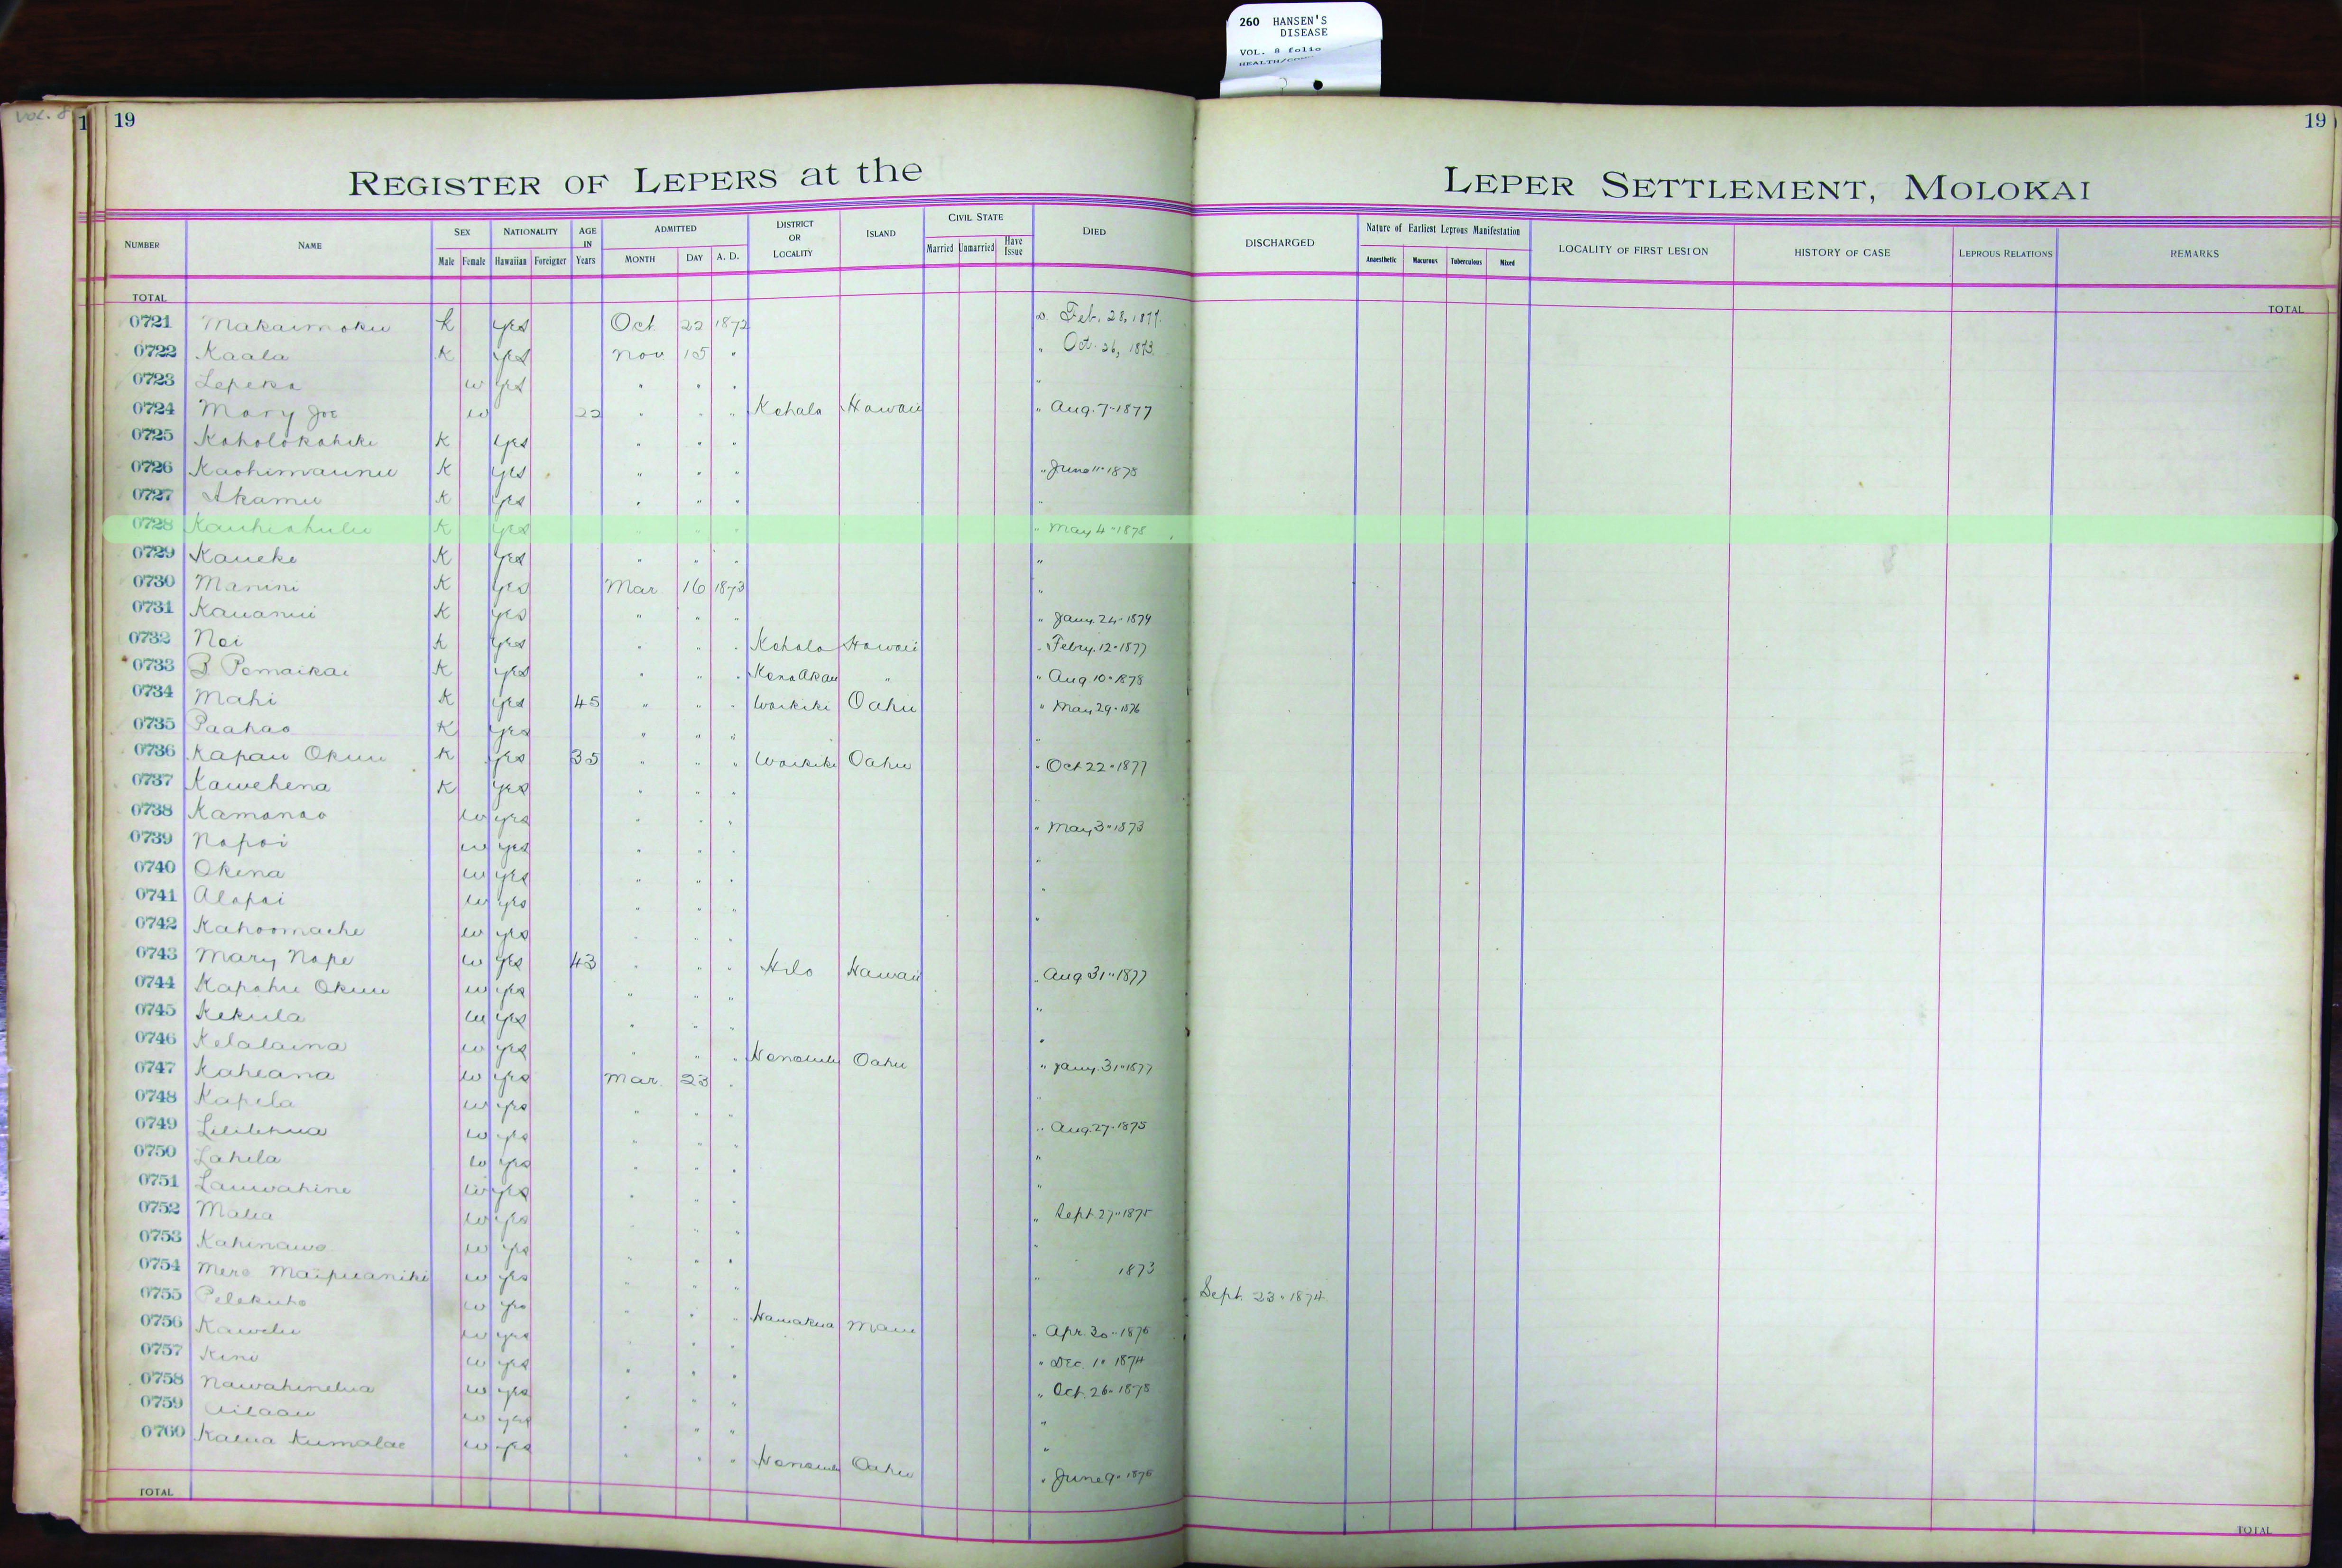 260 HANSEN'S
DISEASE
VOL. 8 folio
Vol. 8
1 19 19
REGISTER OF LEPERS at the LEPER SETTLEMENT, MOLOKAI
NUMBER NAME SEX Male Female NATIONALITY Hawaiian Foreigner AGE IN Years ADMITTED MONTH DAY A. D. DISTRICT OR LOCALITY ISLAND CIVIL STATE Married Unmarried Have Issue DIED DISCHARGED Nature of Earliest Leprous Manifestation Anaesthetic Macurous Tuberculous Mixed LOCALITY OF FIRST LESION HISTORY OF CASE LEPROUS RELATIONS REMARKS
TOTAL TOTAL
0721 Makaimoku k yes Oct 22 1872 Feb. 28, 1877.
0722 Kaala K yes Nov 15 " " Oct. 26, 1873.
0723 Lepeka w yes " " " "
0724 Mary Joe w 22 " " " Kohala Hawaii " Aug. 7-1877
0725 Koholokahiki K yes " " "
0726 Kaohimaunu K yes " " " " June 11-1878
0727 Akamu K yes " " " "
0728 Kauhiahulu K yes " " " " May 4-1878
0729 Kaueke K yes " " " "
0730 Manini K yes Mar 16 1873 "
0731 Kauanui K yes " " " " Jany. 24-1879
0732 Noi K yes " " " Kohala Hawaii " Febry. 12-1877
0733 Pomaikai K yes " " " Kona Akau " " Aug 10-1878
0734 Mahi K yes 45 " " " Waikiki Oahu " May 29-1876
0735 Paahao K yes " " " "
0736 Kapau Okuu K yes 35 " " " Waikiki Oahu " Oct 22-1877
0737 Kawehena K yes " " " "
0738 Kamanao w yes " " " " May 3-1873
0739 Napoi w yes " " " "
0740 Okina w yes " " " "
0741 Alapai w yes " " " "
0742 Kahoomache w yes " "
0743 Mary Nape w yes 43 " " " Hilo Hawaii " Aug 31-1877
0744 Kapahu Okuu w yes " " " "
0745 Kekula w yes " " " "
0746 Kelalaina w yes " " " Honolulu Oahu " Jany. 31-1877
0747 Kaheana w yes Mar. 23 " "
0748 Kapela w yes " " " " Aug. 27-1875
0749 Liilihua w yes " " " "
0750 Lahela w yes " " " "
0751 Lauwahine w yes " " " Sept. 27-1875
0752 Malia w yes " " "
0753 Kahinawe w yes " " " " 1873
0754 Mere Maipuaniki w yes " " " Sept. 23-1874
0755 Pelekuho w yes " " " Hamakua Maui " Apr. 30-1876
0756 Kawelu w yes " " " Dec. 1- 1874
0757 Kini w yes " " " " Oct. 26-1878
0758 Nawahinelua w yes " " " "
0759 Ailaau w yes " " " "
0760 Kalua Kumalae w yes " " " Honolulu Oahu " June 9-1876
TOTAL TOTAL